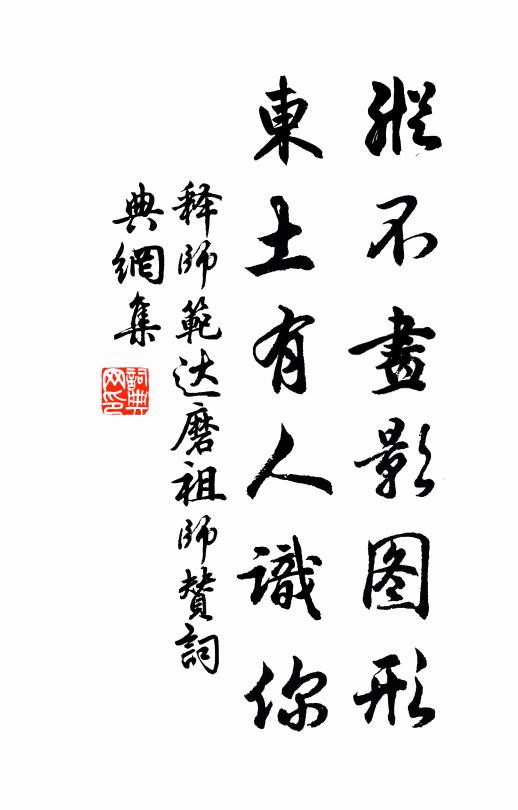 縱不畫影图形
東土有人識你
释師範达磨祖師贊詞
典網集
詞典網印